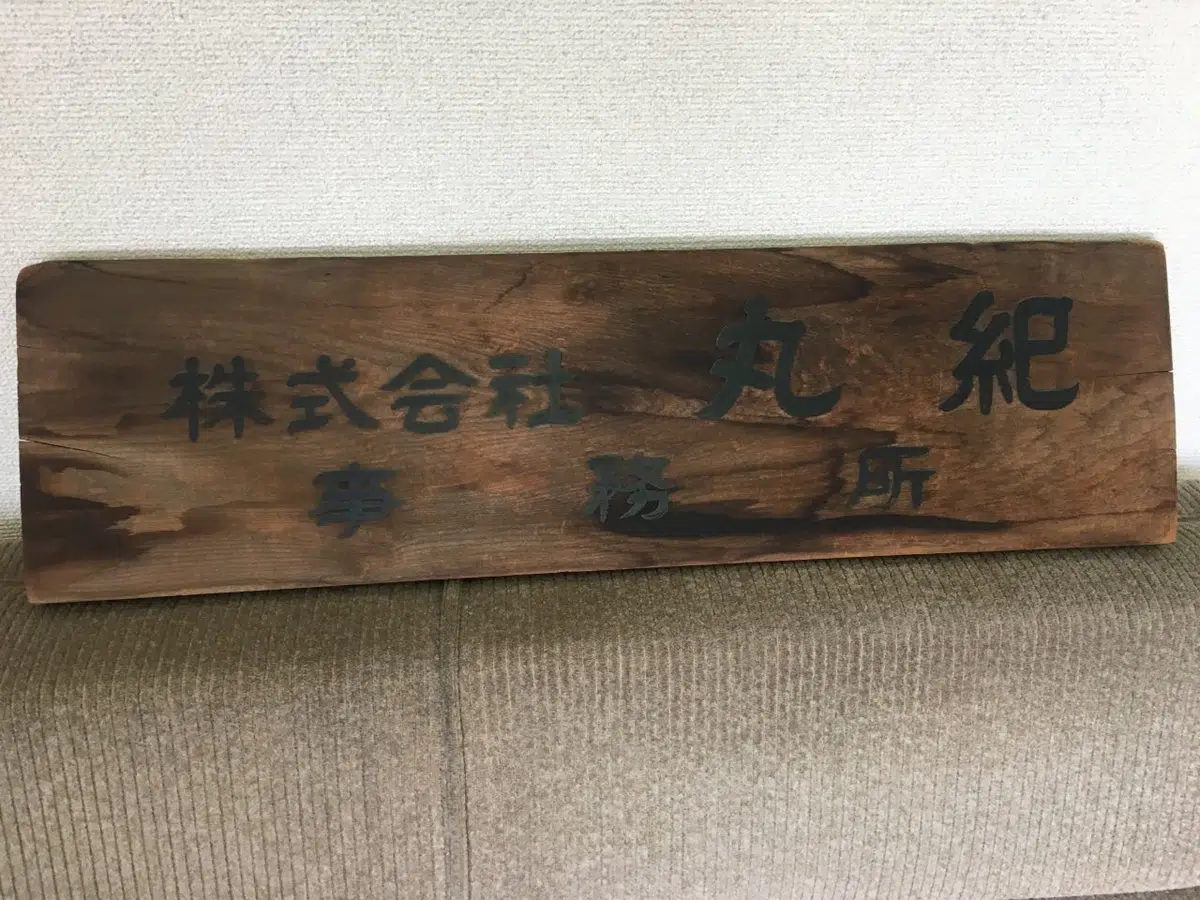 株式会社 丸紀
事務所